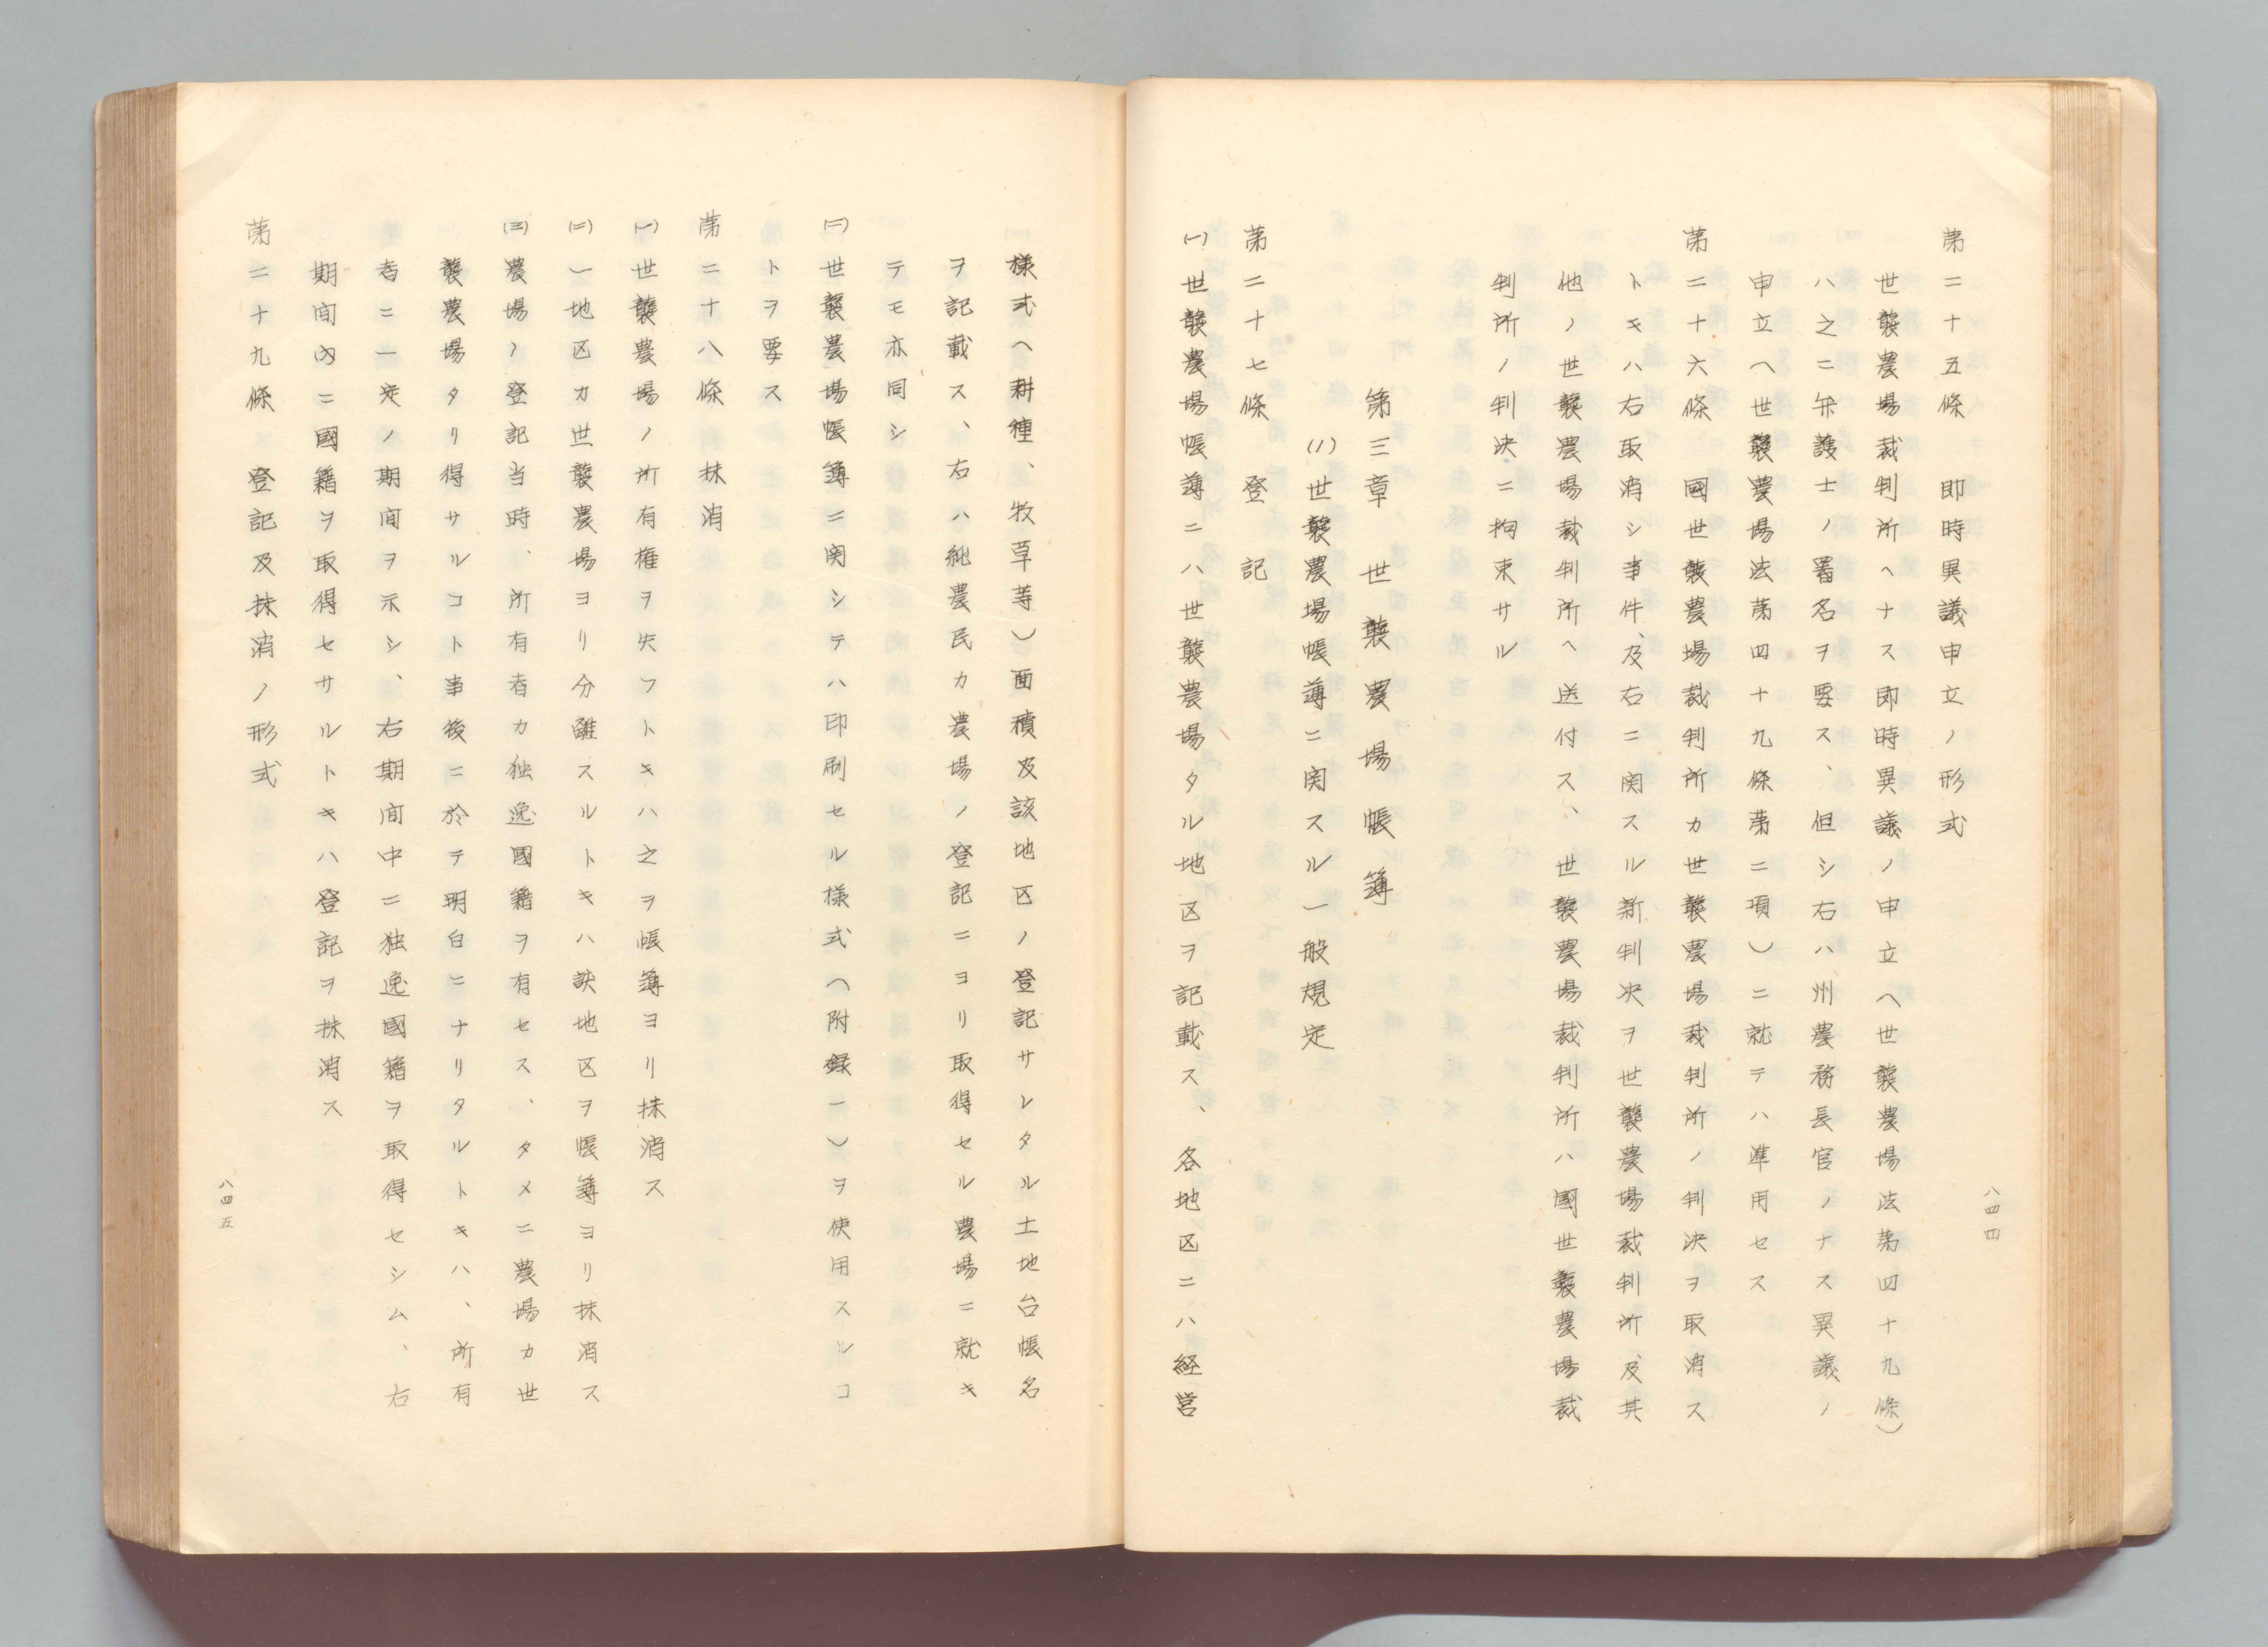 第二十五條　即時異議申立ノ形式
世襲農場裁判所ヘナス即時異議ノ申立（世襲農場法第四十九條）
ハ之ニ弁護士ノ署名ヲ要ス、但シ右ハ州農務長官ノナス異議ノ
申立（世襲農場法第四十九條第二項）ニ就テハ準用セス
第二十六條　國世襲農場裁判所カ世襲農場裁判所ノ判決ヲ取消ス
トキハ右取消シ事件、及右ニ関スル新判決ヲ世襲農場裁判所、及其
他ノ世襲農場裁判所ヘ送付ス、世襲農場裁判所ハ國世襲農場裁
判所ノ判決ニ拘束サル
第三章　世襲農場帳簿
(1)世襲農場帳簿ニ関スル一般規定
第二十七條　登記
(一)世襲農場帳簿ニハ世襲農場タル地区ヲ記載ス、各地区ニハ経営
八四四
様式（耕種、牧草等）面積及該地区ノ登記サレタル土地台帳名
ヲ記載ス、右ハ純農民カ農場ノ登記ニヨリ取得セル農場ニ就キ
テモ亦同シ
(二)世襲農場帳簿ニ関シテハ印刷セル様式（附録一）ヲ使用スルコ
トヲ要ス
第二十八條　抹消
(一)世襲農場ノ所有権ヲ失フトキハ之ヲ帳簿ヨリ抹消ス
(二)一地区カ世襲農場ヨリ分離スルトキハ該地区ヲ帳簿ヨリ抹消ス
(三)農場ノ登記当時、所有者カ独逸國籍ヲ有セス、タメニ農場カ世
襲農場タリ得サルコト事後ニ於テ明白ニナリタルトキハ、所有
者ニ一定ノ期間ヲ示シ、右期間中ニ独逸國籍ヲ取得セシム、右
期間内ニ國籍ヲ取得セサルトキハ登記ヲ抹消ス
第二十九條　登記及抹消ノ形式
八四五